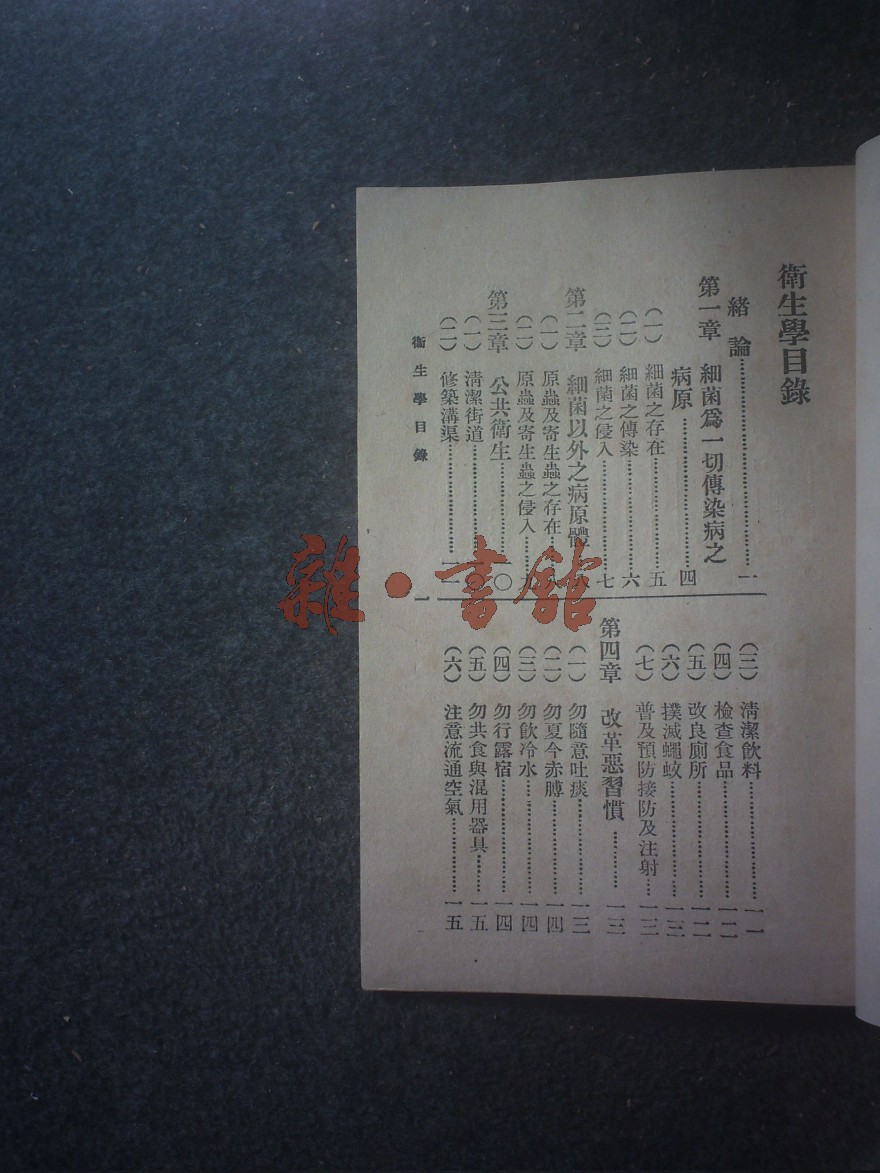 衛生學目錄
緒論……一
第一章 細菌爲一切傳染病之
病原……四
(一) 細菌之存在……五
(二) 細菌之傳染……六
(三) 細菌之侵入……七
第二章 細菌以外之病原體
(一) 原蟲及寄生蟲之存在……八
(二) 原蟲及寄生蟲之侵入……九
第三章 公共衛生……一〇
(一) 清潔街道
(二) 修築溝渠……一一
衛生學目錄
一
(三) 清潔飲料……一一
(四) 檢查食品……一二
(五) 改良廁所……一二
(六) 撲滅蠅蚊……一三
(七) 普及預防接防及注射……一三
第四章 改革惡習慣……一三
(一) 勿隨意吐痰……一三
(二) 勿夏今赤膊……一四
(三) 勿飲冷水……一四
(四) 勿行露宿……一四
(五) 勿共食與混用器具……一五
(六) 注意流通空氣……一五
雜·書館